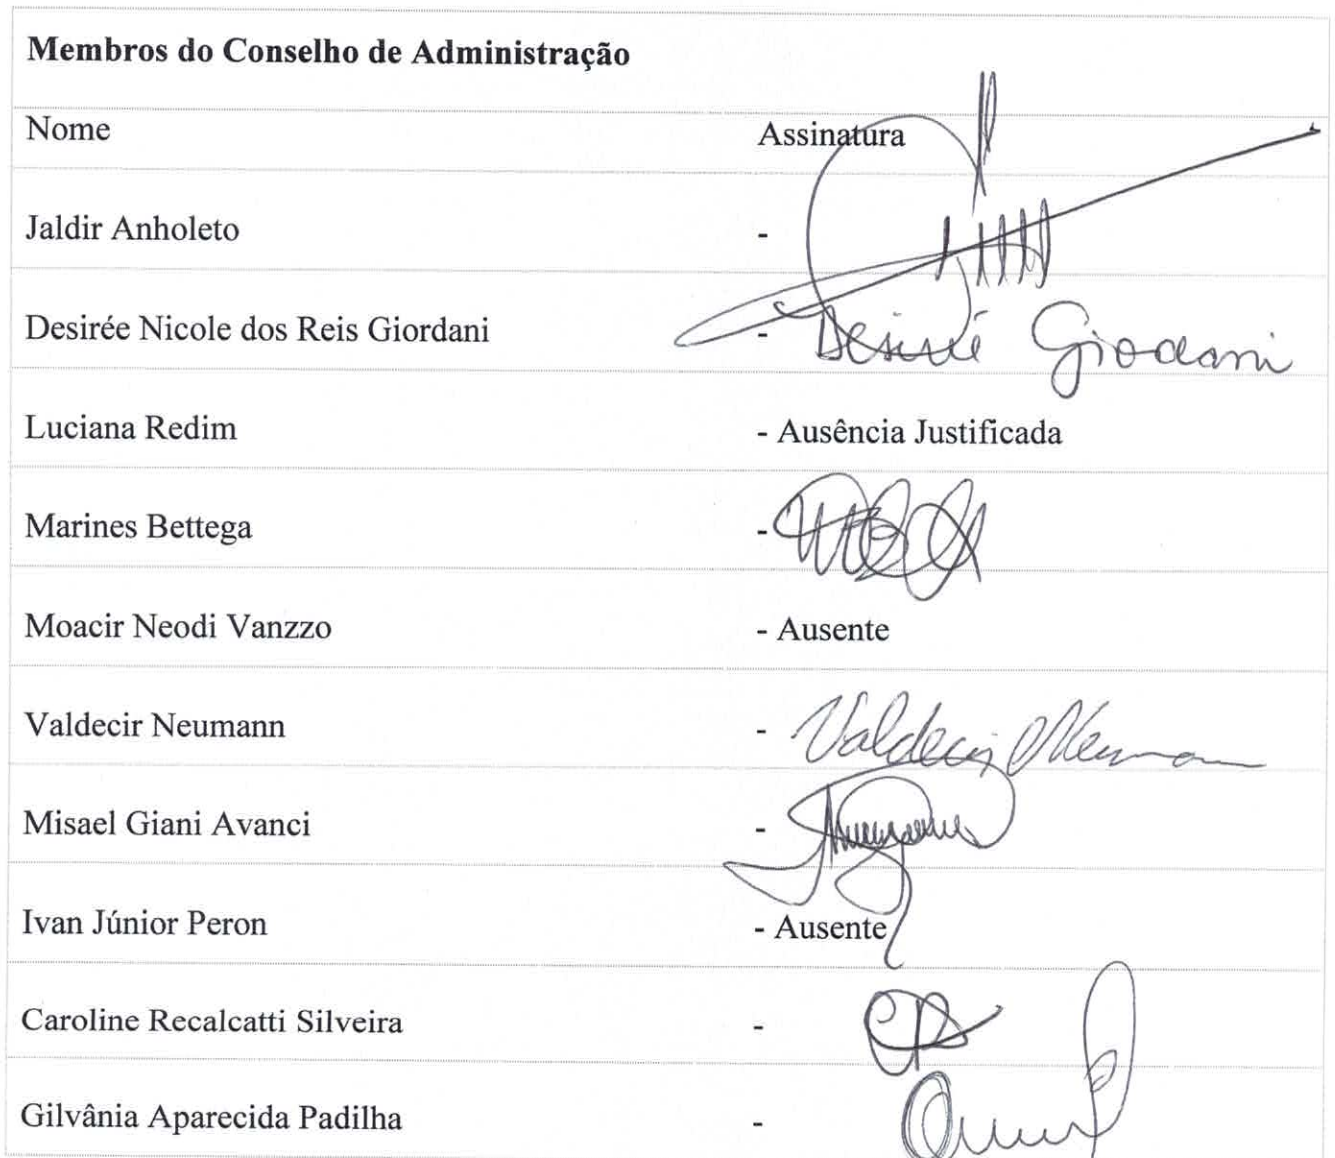 Membros do Conselho de Administração
Nome Assinatura
Jaldir Anholeto -
Desirée Nicole dos Reis Giordani - Desiré Giodani
Luciana Redim - Ausência Justificada
Marines Bettega -
Moacir Neodi Vanzzo - Ausente
Valdecir Neumann - Valdecir Neumann
Misael Giani Avanci -
Ivan Júnior Peron - Ausente
Caroline Recalcatti Silveira -
Gilvânia Aparecida Padilha -